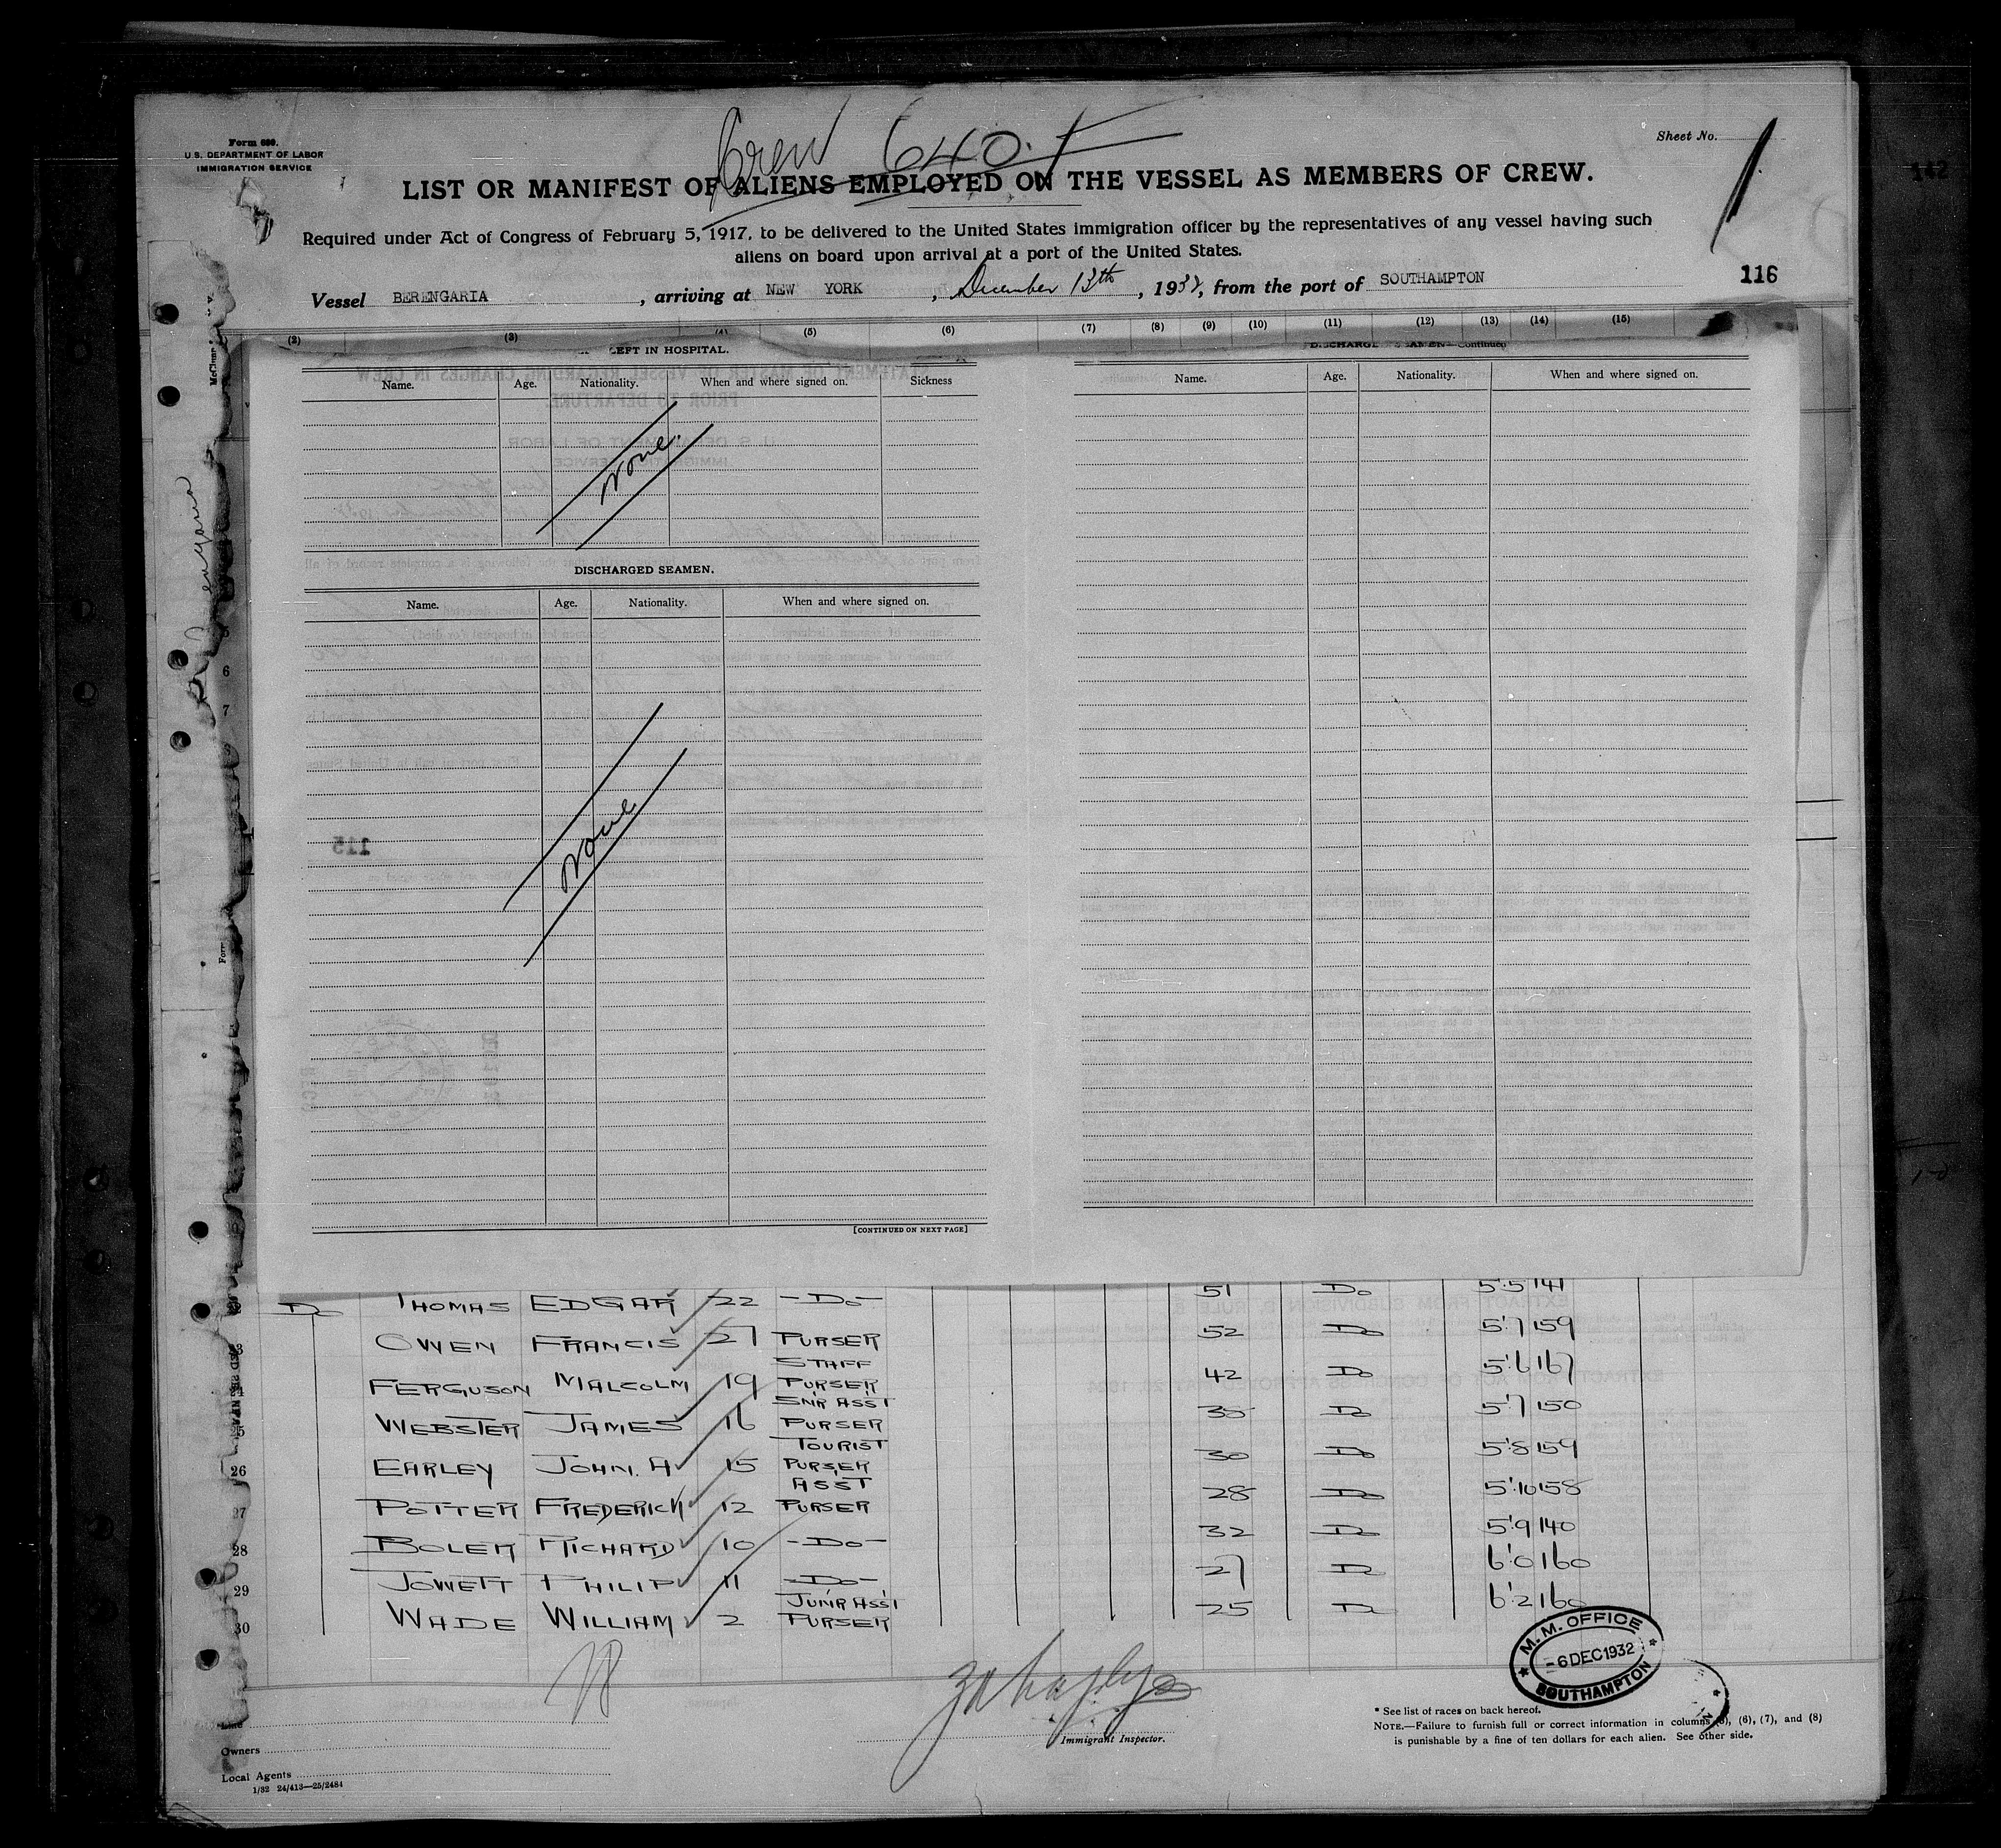 Form 680.
U.S. DEPARTMENT OF LABOR
IMMIGRATION SERVICE
Crew 640.
Sheet No. 1.
LIST OR MANIFEST OF ALIENS EMPLOYED ON THE VESSEL AS MEMBERS OF CREW.
Required under Act of Congress of February 5, 1917, to be delivered to the United States immigration officer by the representatives of any vessel having such
aliens on board upon arrival at a port of the United States.
116
Vessel BERENGARIA, arriving at NEW YORK, December 13th, 1932, from the port of SOUTHAMPTON
(2) (3) (4) (5) (6) (7) (8) (9) (10) (11) (12) (13) (14) (15)
LEFT IN HOSPITAL.
Name. Age. Nationality. When and where signed on. Sickness
None.
DISCHARGED SEAMEN.
Name. Age. Nationality. When and where signed on.
None
[CONTINUED ON NEXT PAGE]
DISCHARGED SEAMEN—Continued
Name. Age. Nationality. When and where signed on.
6
7
Do THOMAS EDGAR 22 -Do- 51 Do 5'5 141
OWEN FRANCIS 27 PURSER 52 Do 5'7 159
FERGUSON MALCOLM 19 STAFF PURSER 42 Do 5'6 167
WEBSTER JAMES 16 SNR ASST PURSER 38 Do 5'7 150
26 EARLEY JOHN. A 15 TOURIST PURSER 30 Do 5'8 159
27 POTTER FREDERICK 12 ASST PURSER 28 Do 5'10 158
28 BOLER RICHARD 10 -Do- 32 Do 5'9 140
29 JOWETT PHILIP 11 -Do- 27 Do 6'0 160
30 WADE WILLIAM 2 JUNR ASST PURSER 25 Do 6'2 160
M. M. OFFICE
-6 DEC 1932
SOUTHAMPTON
Line
Owners
Local Agents
1/32 24/413—25/2484
Immigrant Inspector.
* See list of races on back hereof.
NOTE.—Failure to furnish full or correct information in columns (5), (6), (7), and (8)
is punishable by a fine of ten dollars for each alien. See other side.